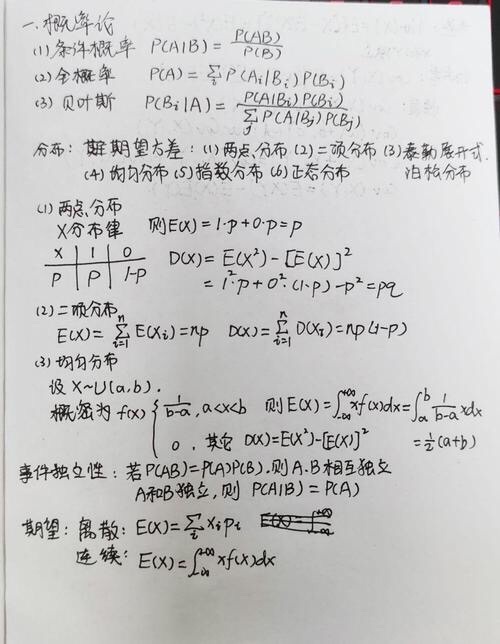 一.概率论
(1) 条件概率 P(A|B) = P(AB)/P(B)
(2) 全概率 P(A) = Σi P(Ai|Bi)P(Bi)
(3) 贝叶斯 P(Bi|A) = P(A|Bi)P(Bi)/Σj P(A|Bj)P(Bj)
分布: 期望方差: (1) 两点分布 (2) 二项分布 (3) 泰勒展开式
(4) 均匀分布 (5) 指数分布 (6) 正态分布 泊松分布
(1) 两点分布
X分布律 则E(X) = 1·p + 0·p = p
X 1 0
P P 1-P
D(X) = E(X²) - [E(X)]²
= 1²·p + 0²·(1-p) - p² = pq
(2) 二项分布
E(X) = Σ(i=1→n) E(Xi) = np D(X) = Σ(i=1→n) D(Xi) = np(1-p)
(3) 均匀分布
设 X~U(a,b).
概密为 f(x) { 1/(b-a), a<x<b 则 E(X) = ∫(-∞→+∞) xf(x)dx = ∫(a→b) 1/(b-a) xdx
0, 其它 D(X) = E(X²) - [E(X)]² = ½(a+b)
事件独立性: 若P(AB)=P(A)P(B), 则A.B相互独立
A和B独立, 则 P(A|B) = P(A)
期望: 离散: E(X) = Σi xipi
连续: E(X) = ∫(-∞→+∞) xf(x)dx